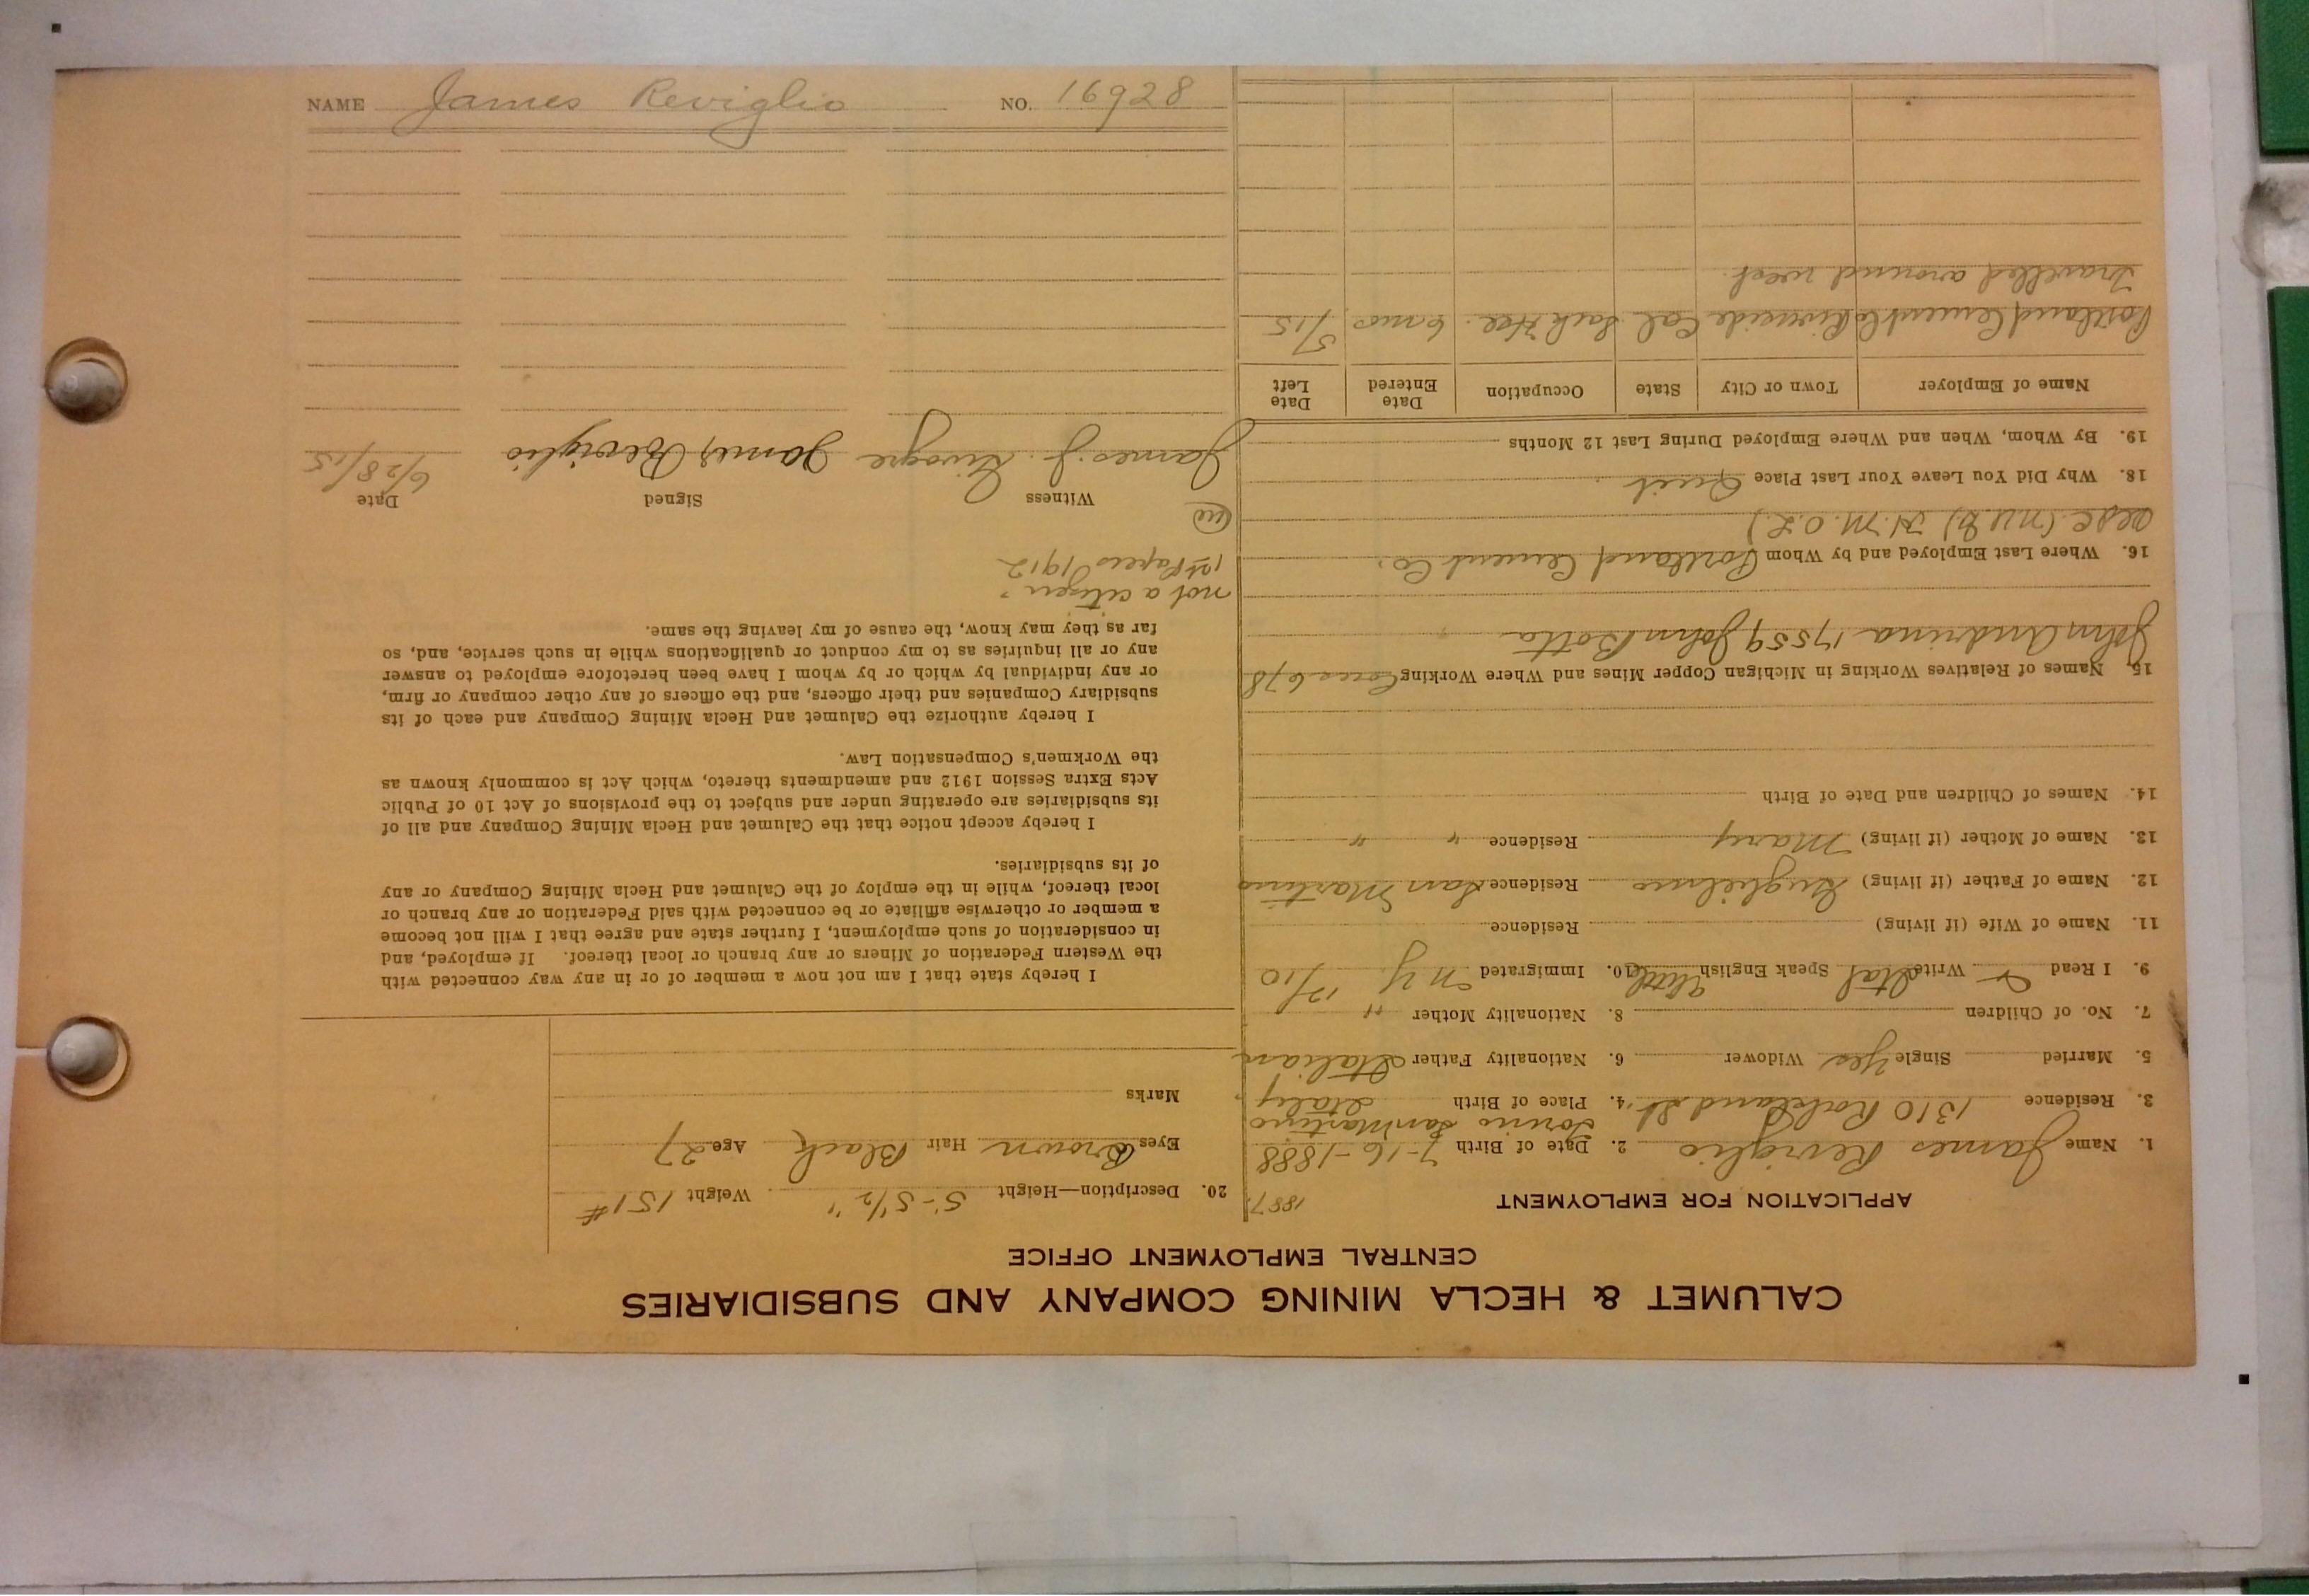 NAME James Reviglio NO. 16928
CALUMET & HECLA MINING COMPANY AND SUBSIDIARIES
CENTRAL EMPLOYMENT OFFICE
APPLICATION FOR EMPLOYMENT
1887
1. Name James Reviglio 2. Date of Birth 7-16-1888
Torino San Martino
3. Residence 1310 Rockland St. 4. Place of Birth Italy
5. Married Single Yes Widower 6. Nationality Father Italian
7. No. of Children 8. Nationality Mother "
9. I Read & Write Ital Speak English little 10. Immigrated N Y 12/10
11. Name of Wife (if living) Residence
12. Name of Father (if living) Guglielmo Residence San Martino
13. Name of Mother (if living) Mary Residence " "
14. Names of Children and Date of Birth
15. Names of Relatives Working in Michigan Copper Mines and Where Working 678
John Andrina 17559 John Botta
16. Where Last Employed and by Whom Portland Cement Co.
aesc (nub) H.M.O.L.)
18. Why Did You Leave Your Last Place Quit
19. By Whom, When and Where Employed During Last 12 Months
Name of Employer Town or City State Occupation Date Entered Date Left
Portland Cement Co Riverside Cal. Sack Hse. 6 mos 5/15
Travelled around west.
20. Description—Height 5-5 1/2" Weight 151#
Eyes Brown Hair Black Age 27
Marks
I hereby state that I am not now a member of or in any way connected with
the Western Federation of Miners or any branch or local thereof. If employed, and
in consideration of such employment, I further state and agree that I will not become
a member or otherwise affiliate or be connected with said Federation or any branch or
local thereof, while in the employ of the Calumet and Hecla Mining Company or any
of its subsidiaries.
I hereby accept notice that the Calumet and Hecla Mining Company and all of
its subsidiaries are operating under and subject to the provisions of Act 10 of Public
Acts Extra Session 1912 and amendments thereto, which Act is commonly known as
the Workmen's Compensation Law.
I hereby authorize the Calumet and Hecla Mining Company and each of its
subsidiary Companies and their officers, and the officers of any other company or firm,
or any individual by which or by whom I have been heretofore employed to answer
any or all inquiries as to my conduct or qualifications while in such service, and, so
far as they may know, the cause of my leaving the same.
not a citizen
1st Papers 1912
Witness Signed Date
James J. James Reviglio 6/28/15